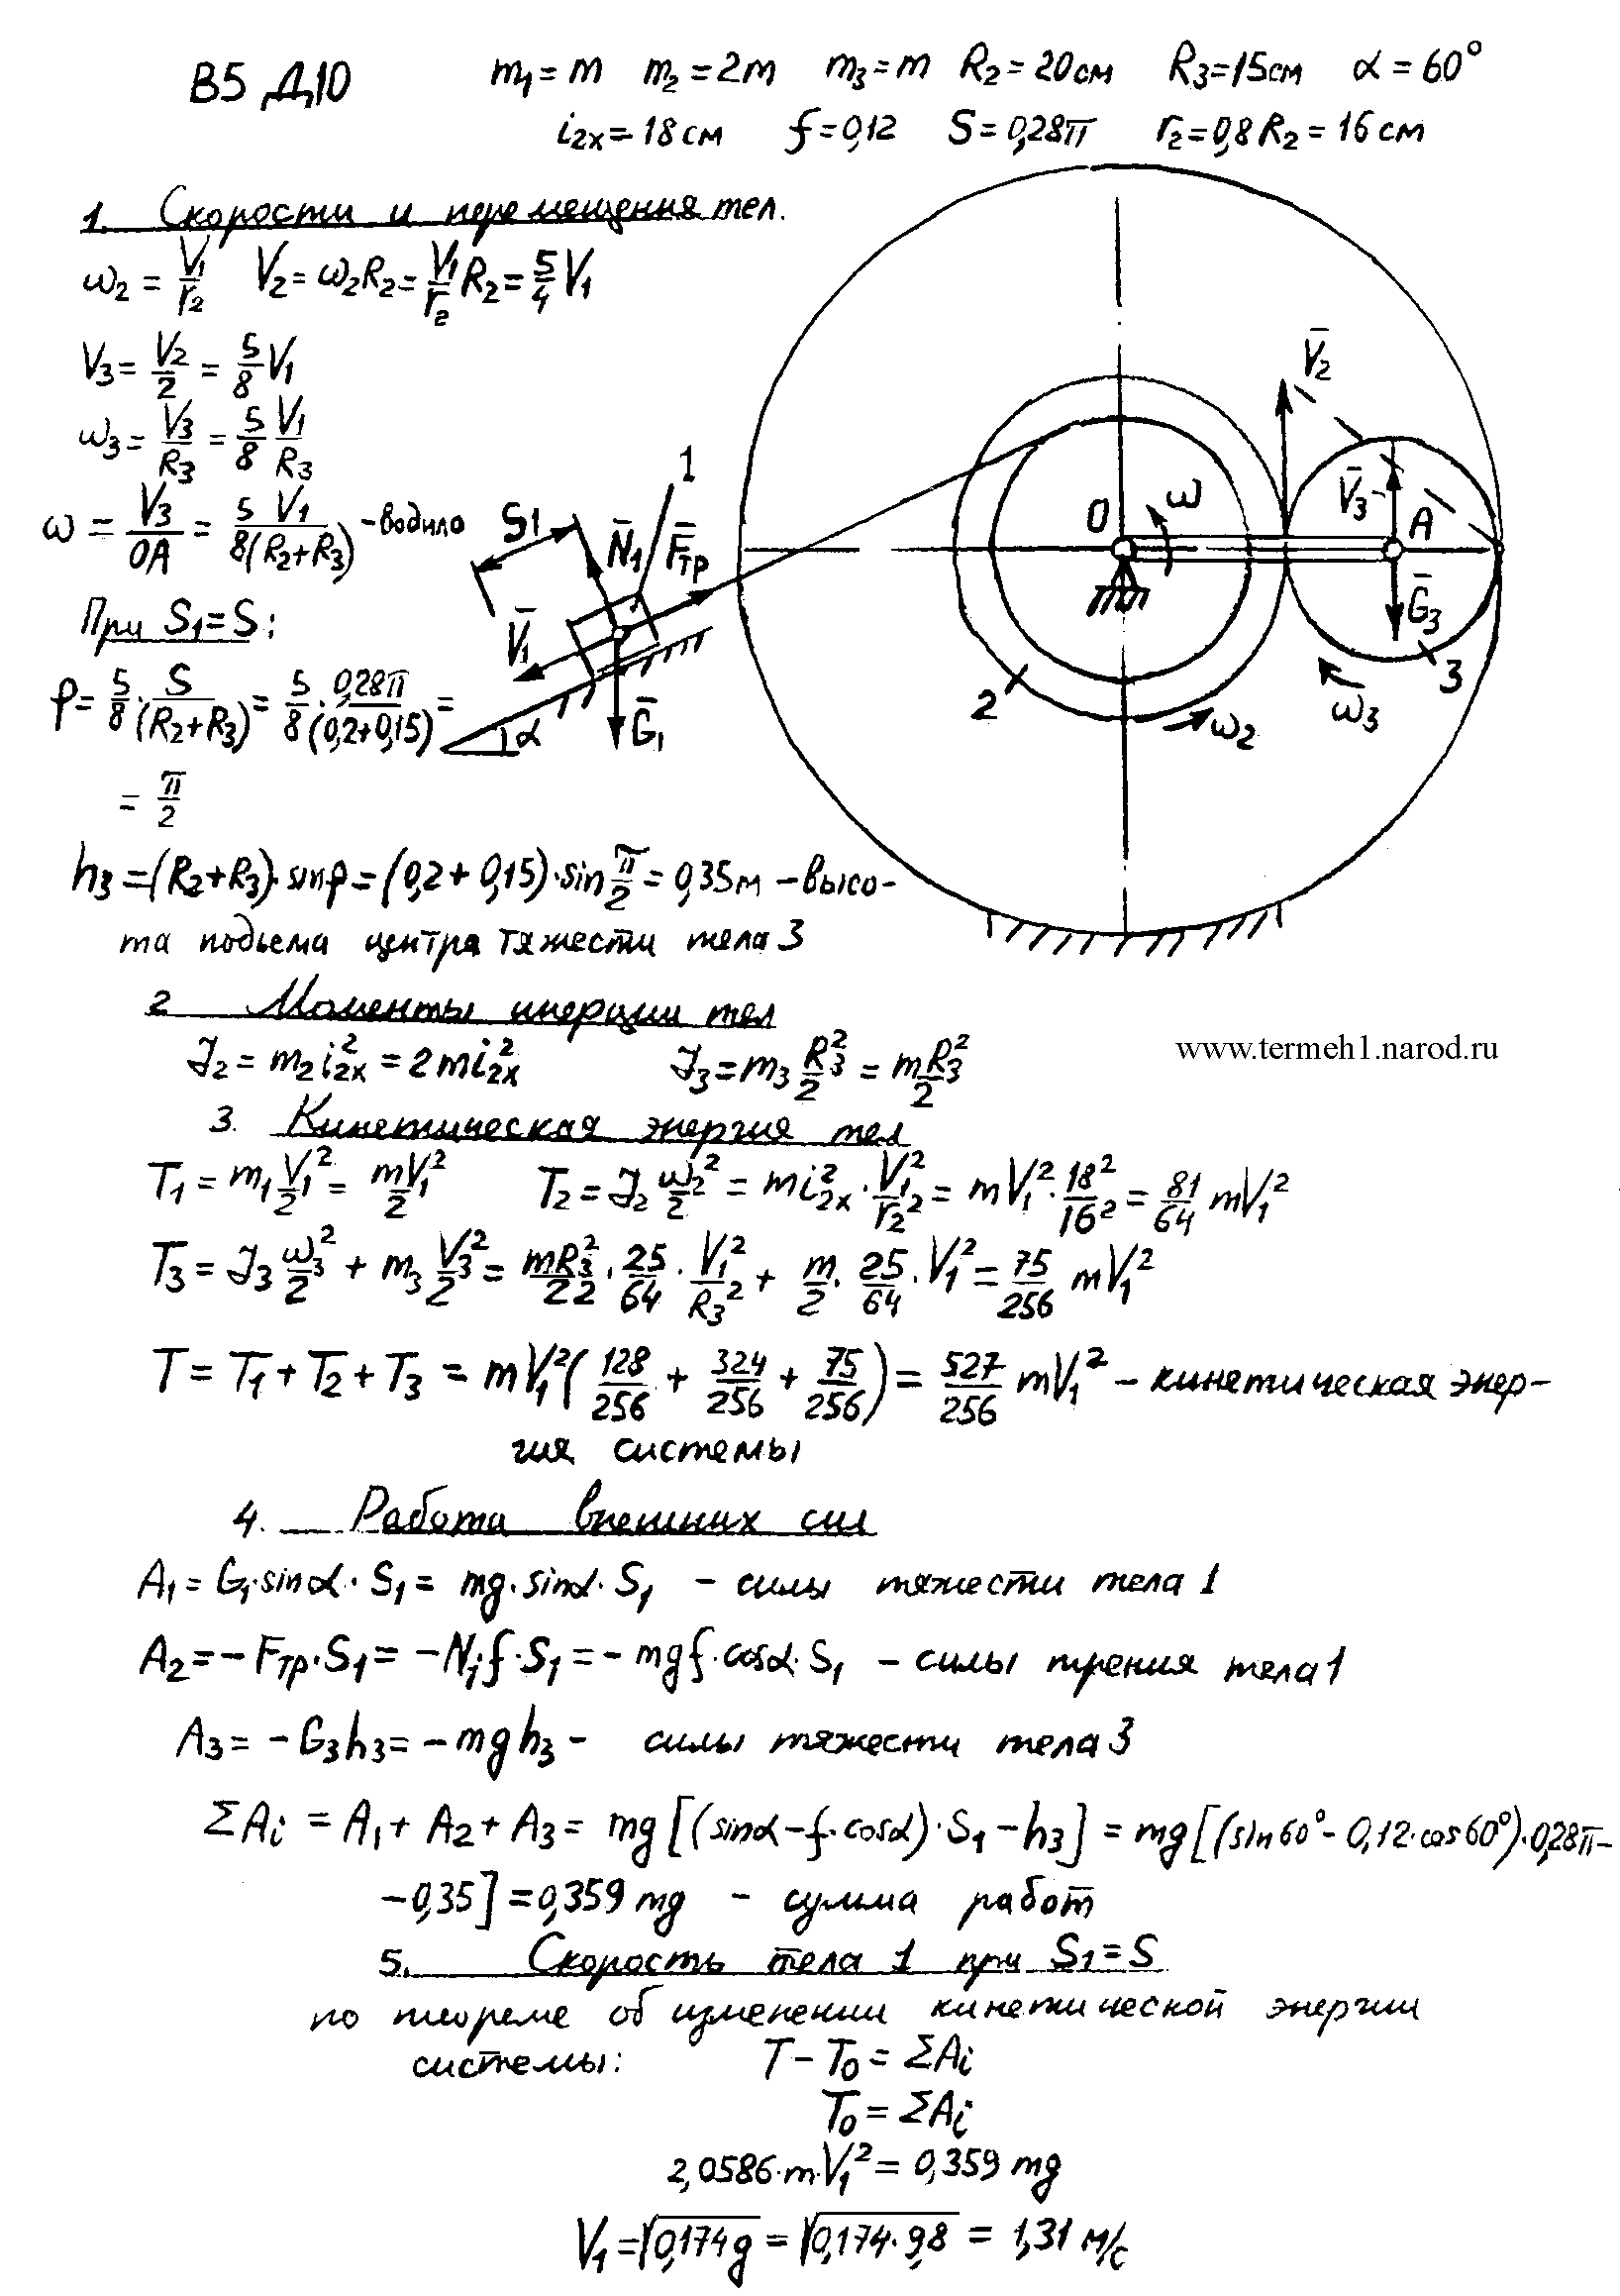 В5 Д10
m₁ = m  m₂ = 2m  m₃ = m  R₂ = 20см  R₃ = 15см  α = 60°
i₂ₓ = 18 см  f = 0,12  S = 0,28π  r₂ = 0,8 R₂ = 16 см
1. Скорости и перемещения тел.
ω₂ = V₁/r₂  V₂ = ω₂R₂ = V₁/r₂ R₂ = 5/4 V₁
V₃ = V₂/2 = 5/8 V₁
ω₃ = V₃/R₃ = 5/8 V₁/R₃
ω = V₃/OA = 5 V₁/8(R₂+R₃) - водило
При S₁ = S:
φ = 5/8 · S/(R₂+R₃) = 5/8 · 0,28π/(0,2+0,15) =
= π/2
S1
N̄₁
1
F̄тр
V̄₁
Ḡ₁
α
O
ω
V̄₂
V̄₃
A
Ḡ₃
3
ω̄₃
2
ω₂
h₃ = (R₂+R₃)·sinφ = (0,2 + 0,15)·sin π/2 = 0,35м - высо-
та подьема центра тяжести тела 3
2 Моменты инерции тел
J₂ = m₂ i₂ₓ² = 2m i₂ₓ²  J₃ = m₃ R₃²/2 = m R₃²/2
www.termeh1.narod.ru
3. Кинетическая энергия тел
T₁ = m₁ V₁²/2 = mV₁²/2  T₂ = J₂ ω₂²/2 = m i₂ₓ² · V₁²/r₂² = mV₁² · 18²/16² = 81/64 mV₁²
T₃ = J₃ ω₃²/2 + m₃ V₃²/2 = mR₃²/22 · 25/64 · V₁²/R₃² + m/2 · 25/64 · V₁² = 75/256 mV₁²
T = T₁ + T₂ + T₃ = mV₁²(128/256 + 324/256 + 75/256) = 527/256 mV₁² - кинетическая энер-
гия системы
4. Работа внешних сил
A₁ = G₁·sinα · S₁ = mg·sinα·S₁ - силы тяжести тела 1
A₂ = - Fтр·S₁ = -N₁f·S₁ = - mgf·cosα·S₁ - силы трения тела 1
A₃ = - G₃h₃ = - mgh₃ - силы тяжести тела 3
ΣAᵢ = A₁ + A₂ + A₃ = mg[(sinα - f·cosα)·S₁ - h₃] = mg[(sin60° - 0,12·cos60°)·0,28π -
-0,35] = 0,359 mg - сумма работ
5. Скорость тела 1 при S₁ = S
по теореме об изменении кинетической энергии
системы: T - T₀ = ΣAᵢ
T₀ = ΣAᵢ
2,0586·m·V₁² = 0,359 mg
V₁ = √0,174g = √0,174·9,8 = 1,31 м/с